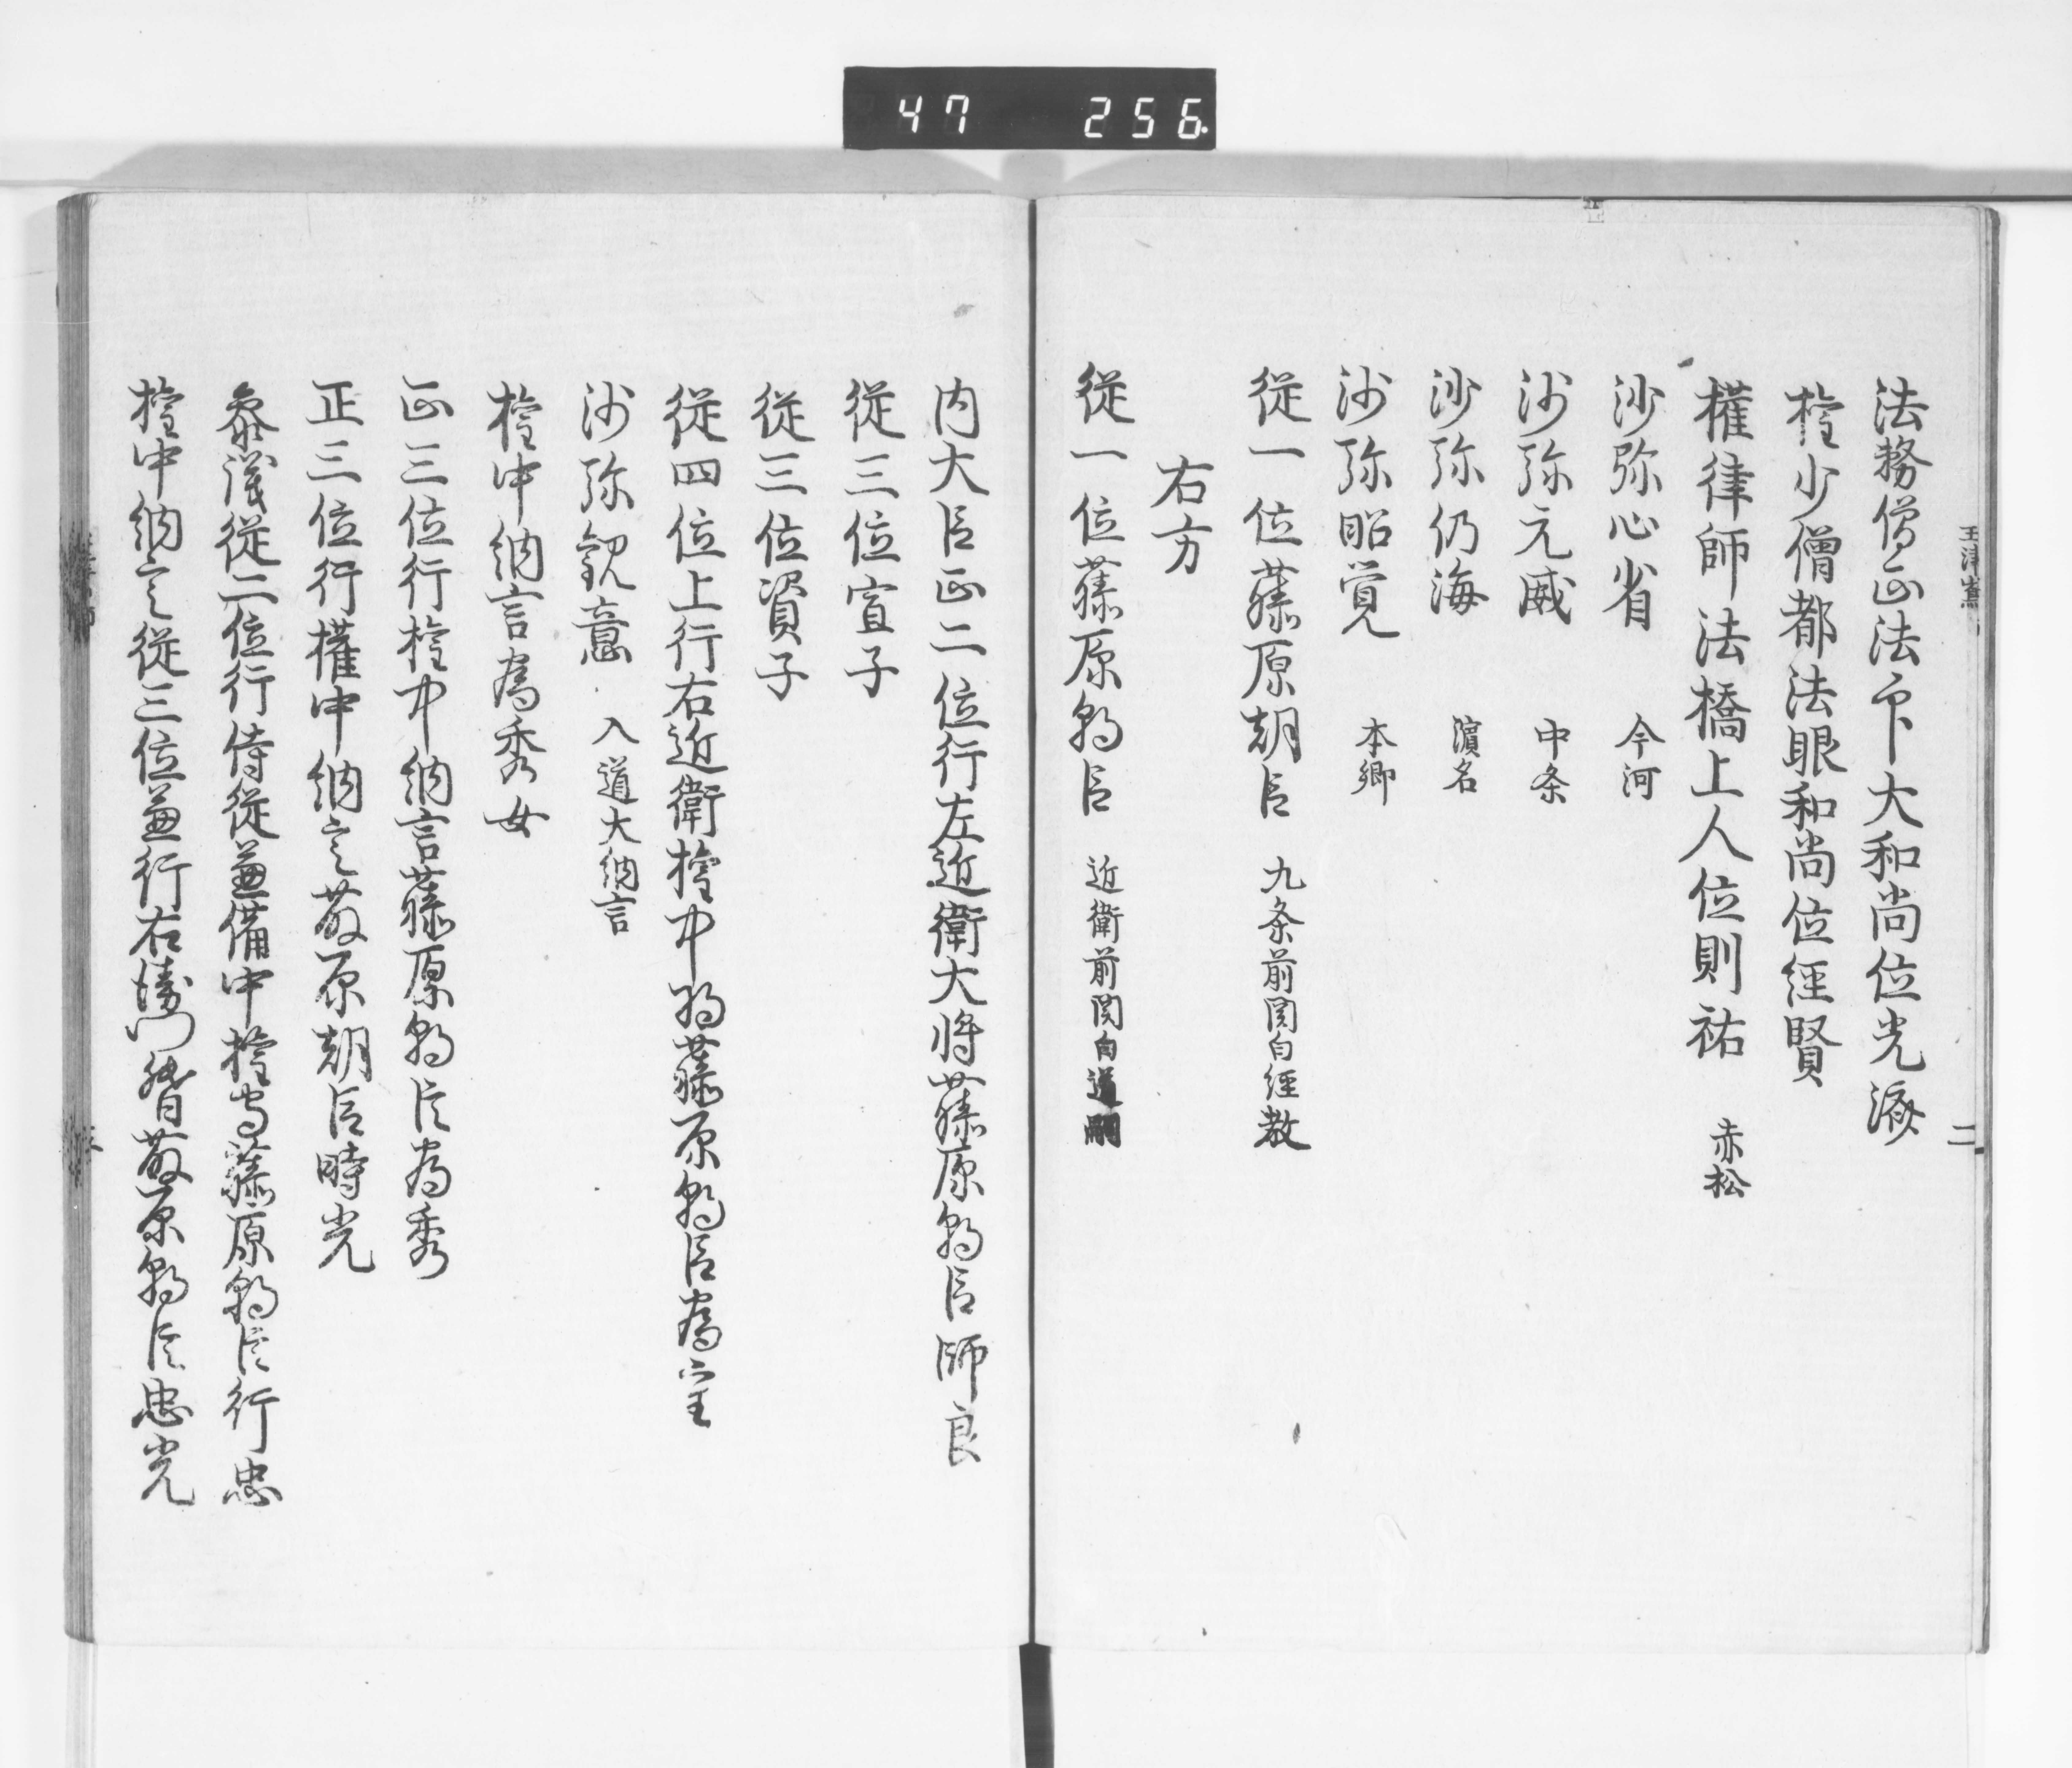 47 256
二
法務僧正法印大和尚位光済
権少僧都法眼和尚位経賢
権律師法橋上人位則祐 赤松
沙弥心省 今河
沙弥元威 中条
沙弥仍海 濱名
沙弥昭覚 本郷
従一位藤原朝臣 九条前関白経教
右方
従一位藤原朝臣 近衛前関白道嗣
内大臣正二位行左近衛大将藤原朝臣師良
従三位宣子
従三位資子
従四位上行右近衛権中将藤原朝臣為重
沙弥観意 入道大納言
権中納言為秀女
正三位行権中納言藤原朝臣為秀
正三位行権中納言藤原朝臣時光
参議従二位行侍従兼備中権守藤原朝臣行忠
権中納言従三位兼行右衛門督藤原朝臣忠光